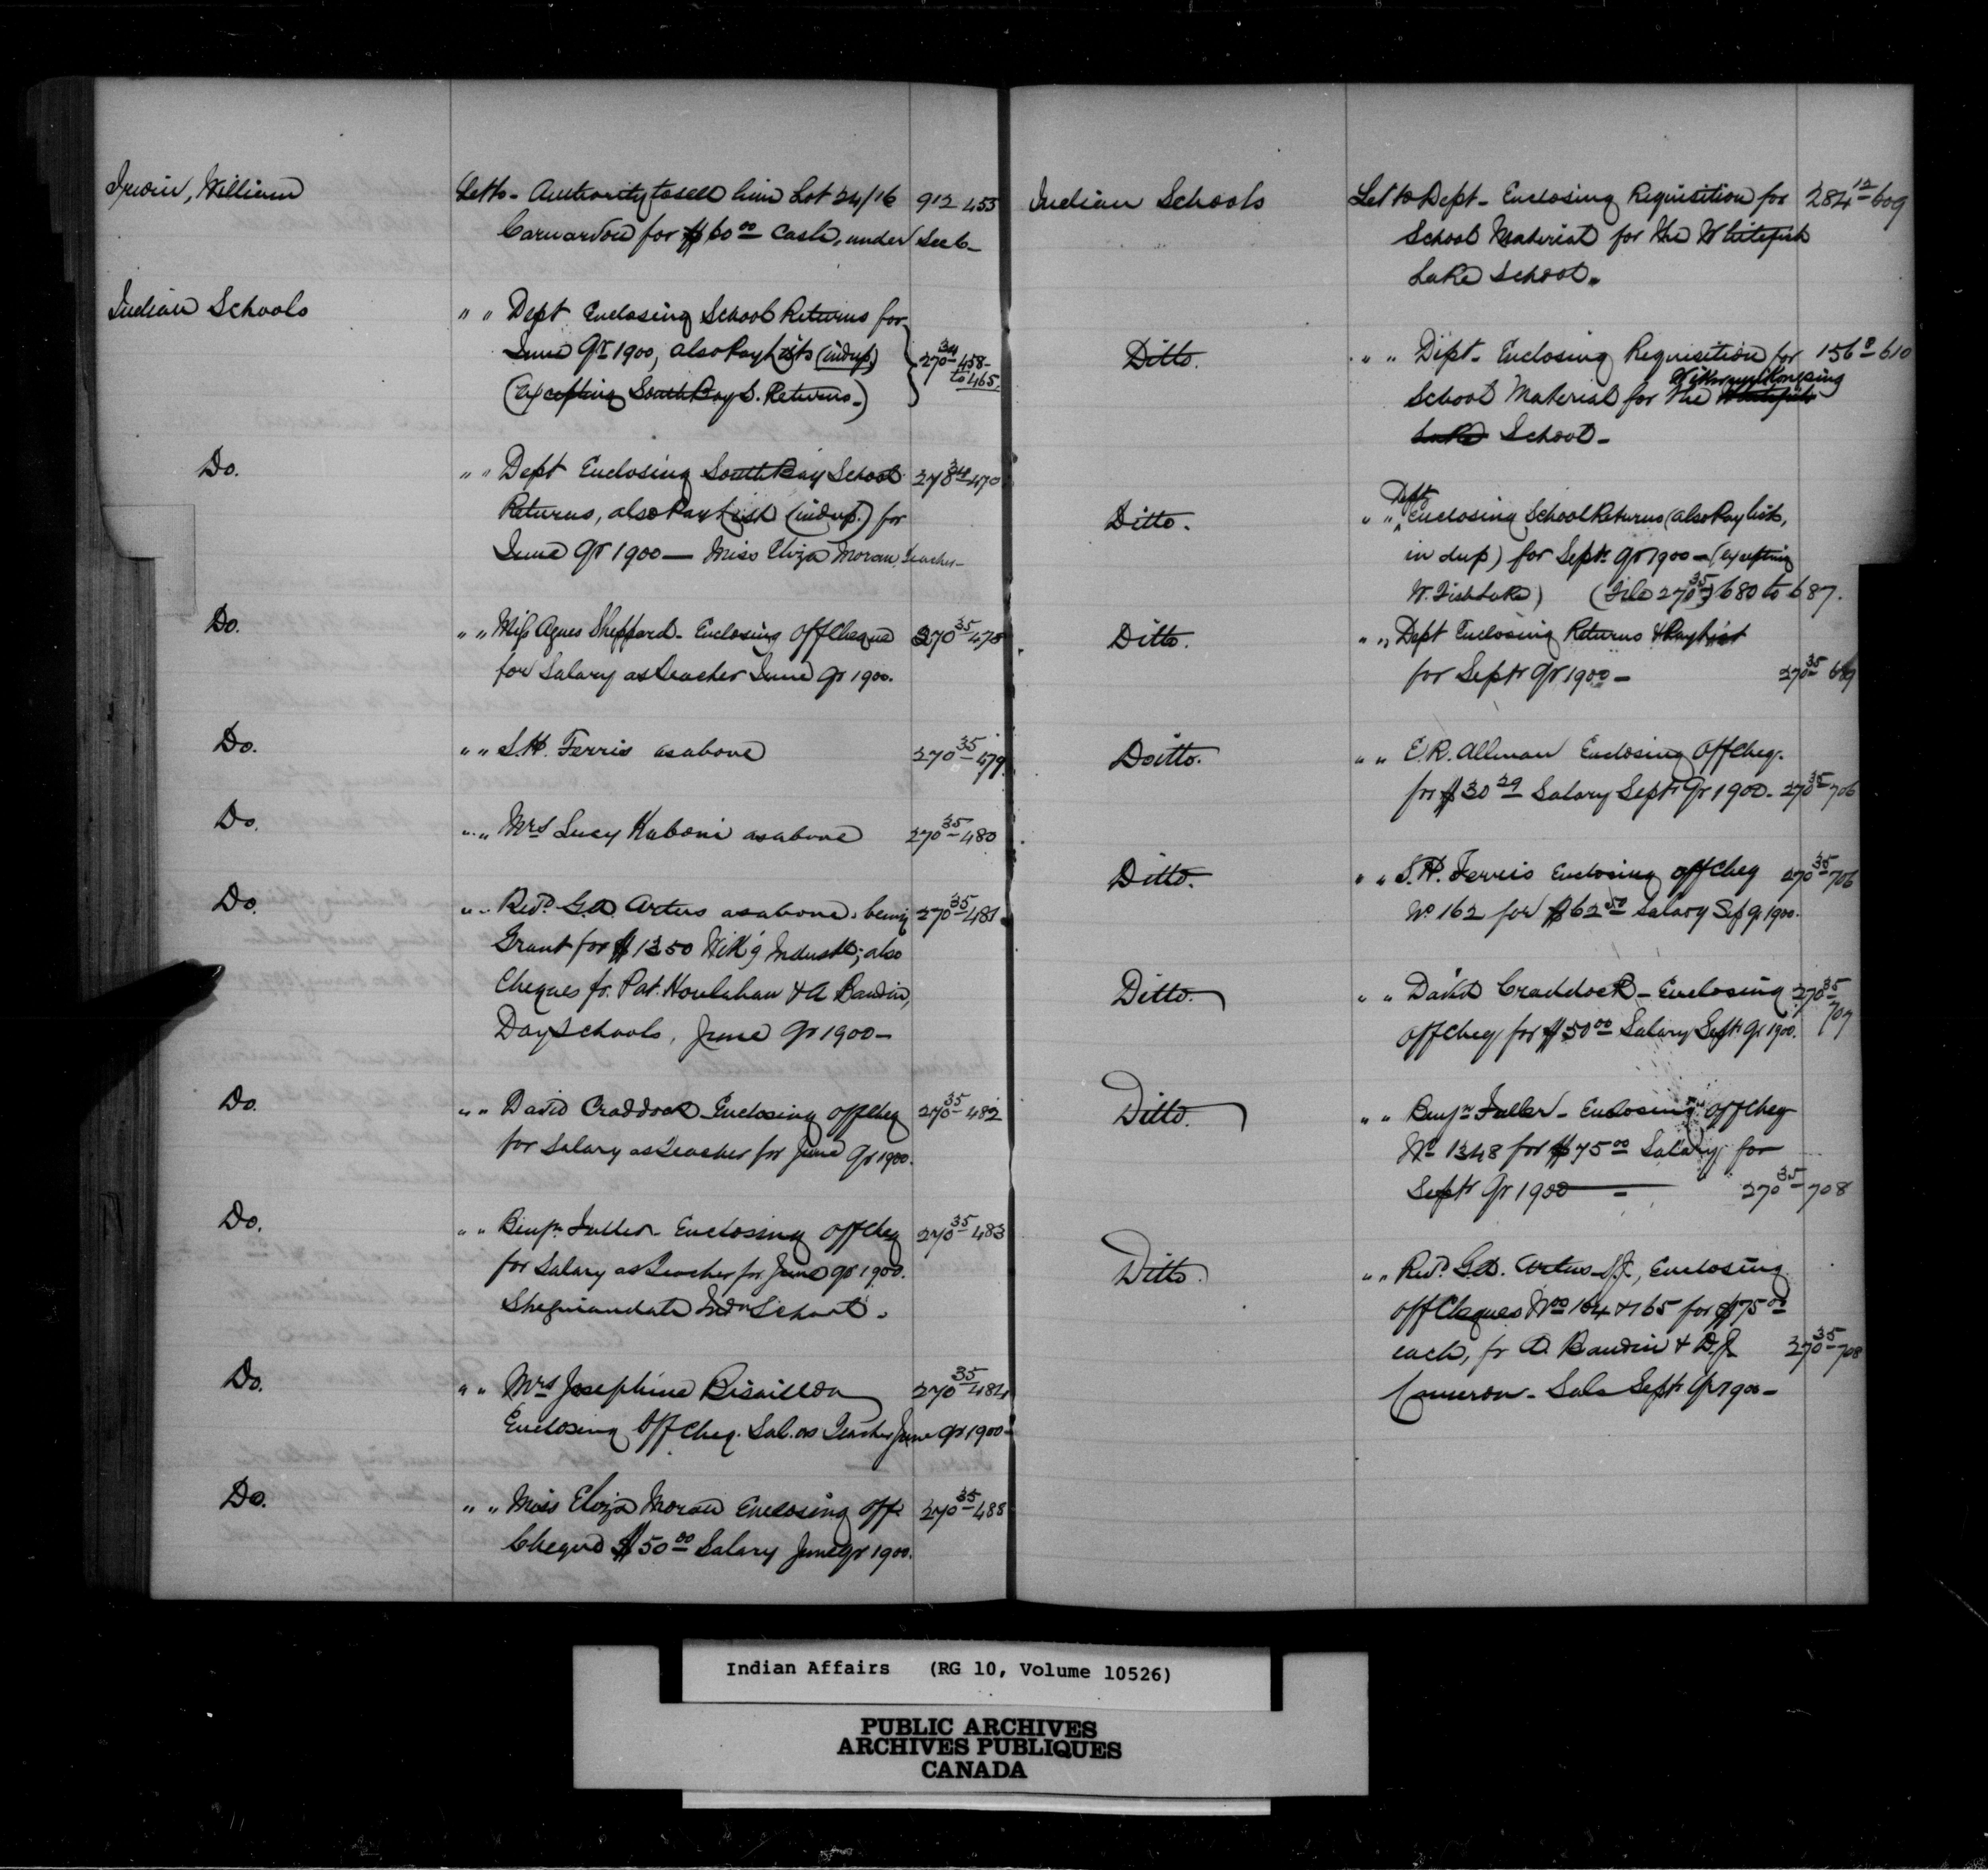 Irwin, William
Let to - Authority to sell him Lot 24/16 912 453
Carnarvon for $60 00 Cash, under Sec 6 -
Indian Schools
" " Dept Enclosing School Returns for
June Qr 1900, also Paylists (in dup) 270 34 458 -
(excepting South Bay S. Returns -) to 465
Do.
" " Dept Enclosing South Bay School 278 34 470
Returns, also Paylist (in dup.) for
June Qr 1900 — Miss Eliza Moran, Teacher -
Do.
" " Miss Agnes Sheppard - Enclosing Off Cheque 270 35 478
for Salary as Teacher June Qr 1900.
Do.
" " S.H. Ferris as above 270 35 479
Do.
" " Mrs Lucy Kaboni as above 270 35 480
Do.
" " Revd. G.A. Artus as above, being 270 35 481
Grant for $1350 Wik'g Industl; also
Cheques fr. Pat. Houlahan & A Baudin,
Day Schools, June Qr 1900 -
Do.
" " David Craddock - Enclosing Off Cheq 270 35 482
for Salary as Teacher for June Qr 1900.
Do.
" " Benjn. Fuller - Enclosing Off Cheq 270 35 483
for Salary as Teacher for June Qr 1900.
Sheguiandah Indn School.
Do.
" " Mrs Josephine Bisaillon 270 35 484
Enclosing Off Cheq. Sal. as Teacher June Qr 1900 -
Do.
" " Miss Eliza Moran Enclosing Off 270 35 488
Cheque $50 00 Salary June Qr 1900.
Indian Schools
Let to Dept - Enclosing Requisition for 284 12 609
School Material for the Whitefish
Lake School.
Ditto.
" " Dept - Enclosing Requisition for 156 8 610
Wikwemikongsing
School Material for the Whitefish
Lake School -
Ditto.
Dept
" " Enclosing School Returns (also Paylists,
in dup) for Septr. Qr 1900 - (excepting
W. Fish Lake) (File 270 35) 680 to 687.
Ditto.
" " Dept Enclosing Returns & Paylist
for Septr Qr 1900 - 270 35 689
Doitto.
" " E.R. Allman Enclosing Off Cheq.
for $30 29 Salary Septr Qr 1900 - 270 35 706
Ditto.
" " S.H. Ferris Enclosing Off Cheq 270 35 706
No 162 for $62 50 Salary Sep Qr 1900.
Ditto.
" " David Craddock - Enclosing 270 35
Off Cheq for $50 00 Salary Septr Qr 1900. 707
Ditto.
" " Benjn Fuller - Enclosing Off Cheq
No 1348 for $75 00 Salary for
Septr Qr 1900 - 270 35 708
Ditto.
" " Revd. G.A. Artus S.J., Enclosing
Off Cheques Nos 164 & 165 for $75 00
each, fr A. Baudin & D.J. 270 35 708
Cameron - Sals Septr Qr 1900 -
Indian Affairs (RG 10, Volume 10526)
PUBLIC ARCHIVES
ARCHIVES PUBLIQUES
CANADA